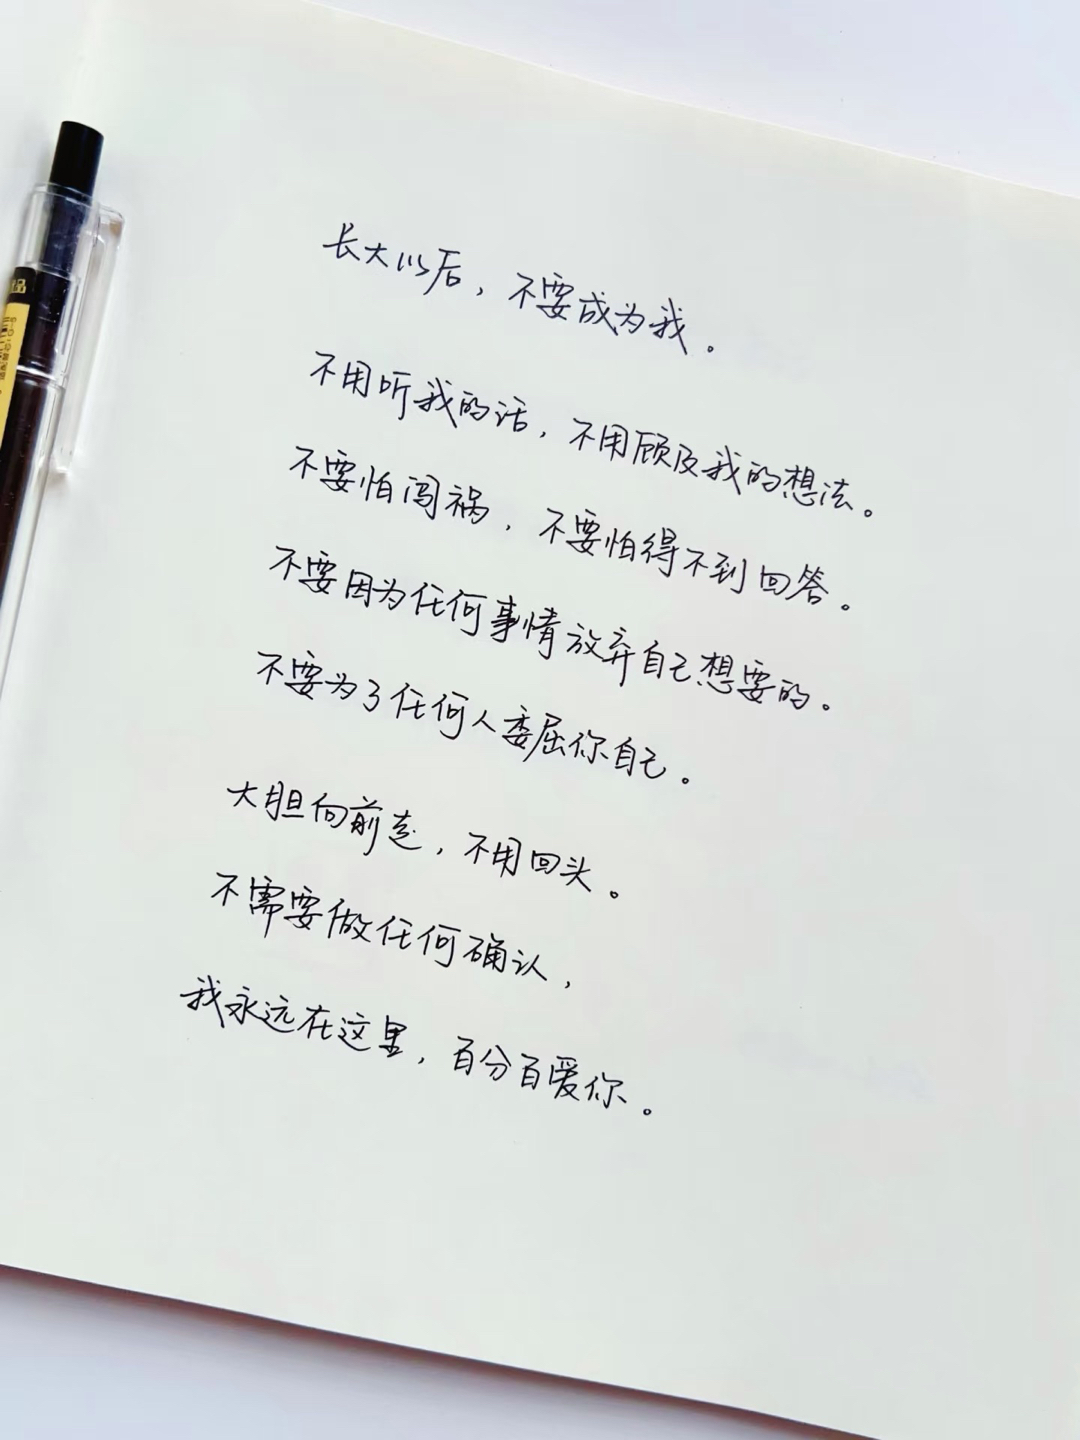 长大以后，不要成为我。
不用听我的话，不用顾及我的想法。
不要怕闯祸，不要怕得不到回答。
不要因为任何事情放弃自己想要的。
不要为了任何人委屈你自己。
大胆向前走，不用回头。
不需要做任何确认，
我永远在这里，百分百爱你。
品